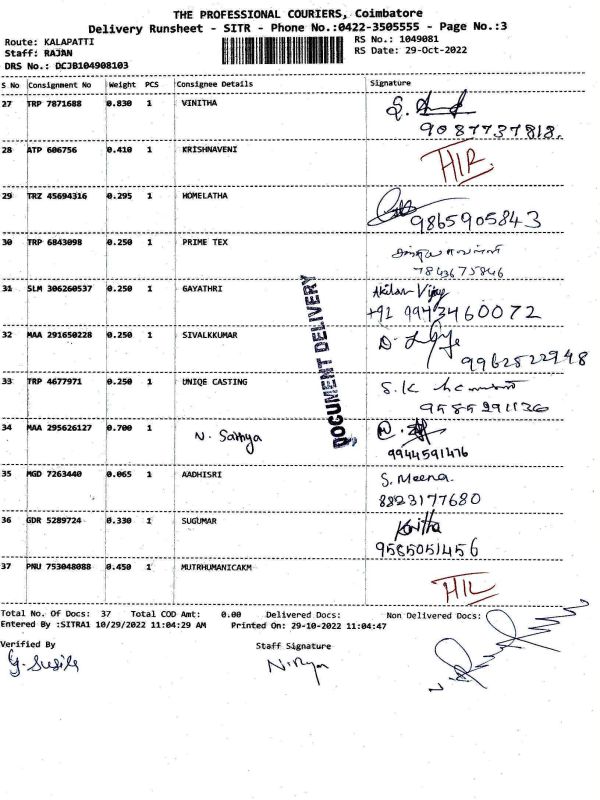 THE PROFESSIONAL COURIERS, Coimbatore
Delivery Runsheet - SITR - Phone No.:0422-3505555 - Page No.:3
Route: KALAPATTI
RS No.: 1049081
Staff: RAJAN
RS Date: 29-Oct-2022
DRS No.: DCJB104908103
S No Consignment No Weight PCS Consignee Details Signature
27 TRP 7871688 0.830 1 VINITHA
9087737818.
28 ATP 606756 0.410 1 KRISHNAVENI
29 TRZ 45694316 0.295 1 HOMELATHA
9865905843
30 TRP 6843098 0.250 1 PRIME TEX
7843675846
31 SLM 306260537 0.250 1 GAYATHRI Akilan Vijay
+91 9943460072
32 MAA 291650228 0.250 1 SIVALKKUMAR
9962522948
33 TRP 4677971 0.250 1 UNIQE CASTING S.K
9585291136
34 MAA 295626127 0.700 1 N. Sathya
9944591476
35 MGD 7263440 0.065 1 AADHISRI S. Meena.
8823177680
36 GDR 5289724 0.330 1 SUGUMAR Kavitha
9585051456
37 PNU 753048088 0.450 1 MUTRHUMANICAKM
DOCUMENT DELIVERY
Total No. Of Docs: 37 Total COD Amt: 0.00 Delivered Docs: Non Delivered Docs:
Entered By :SITRA1 10/29/2022 11:04:29 AM Printed On: 29-10-2022 11:04:47
Verified By Staff Signature